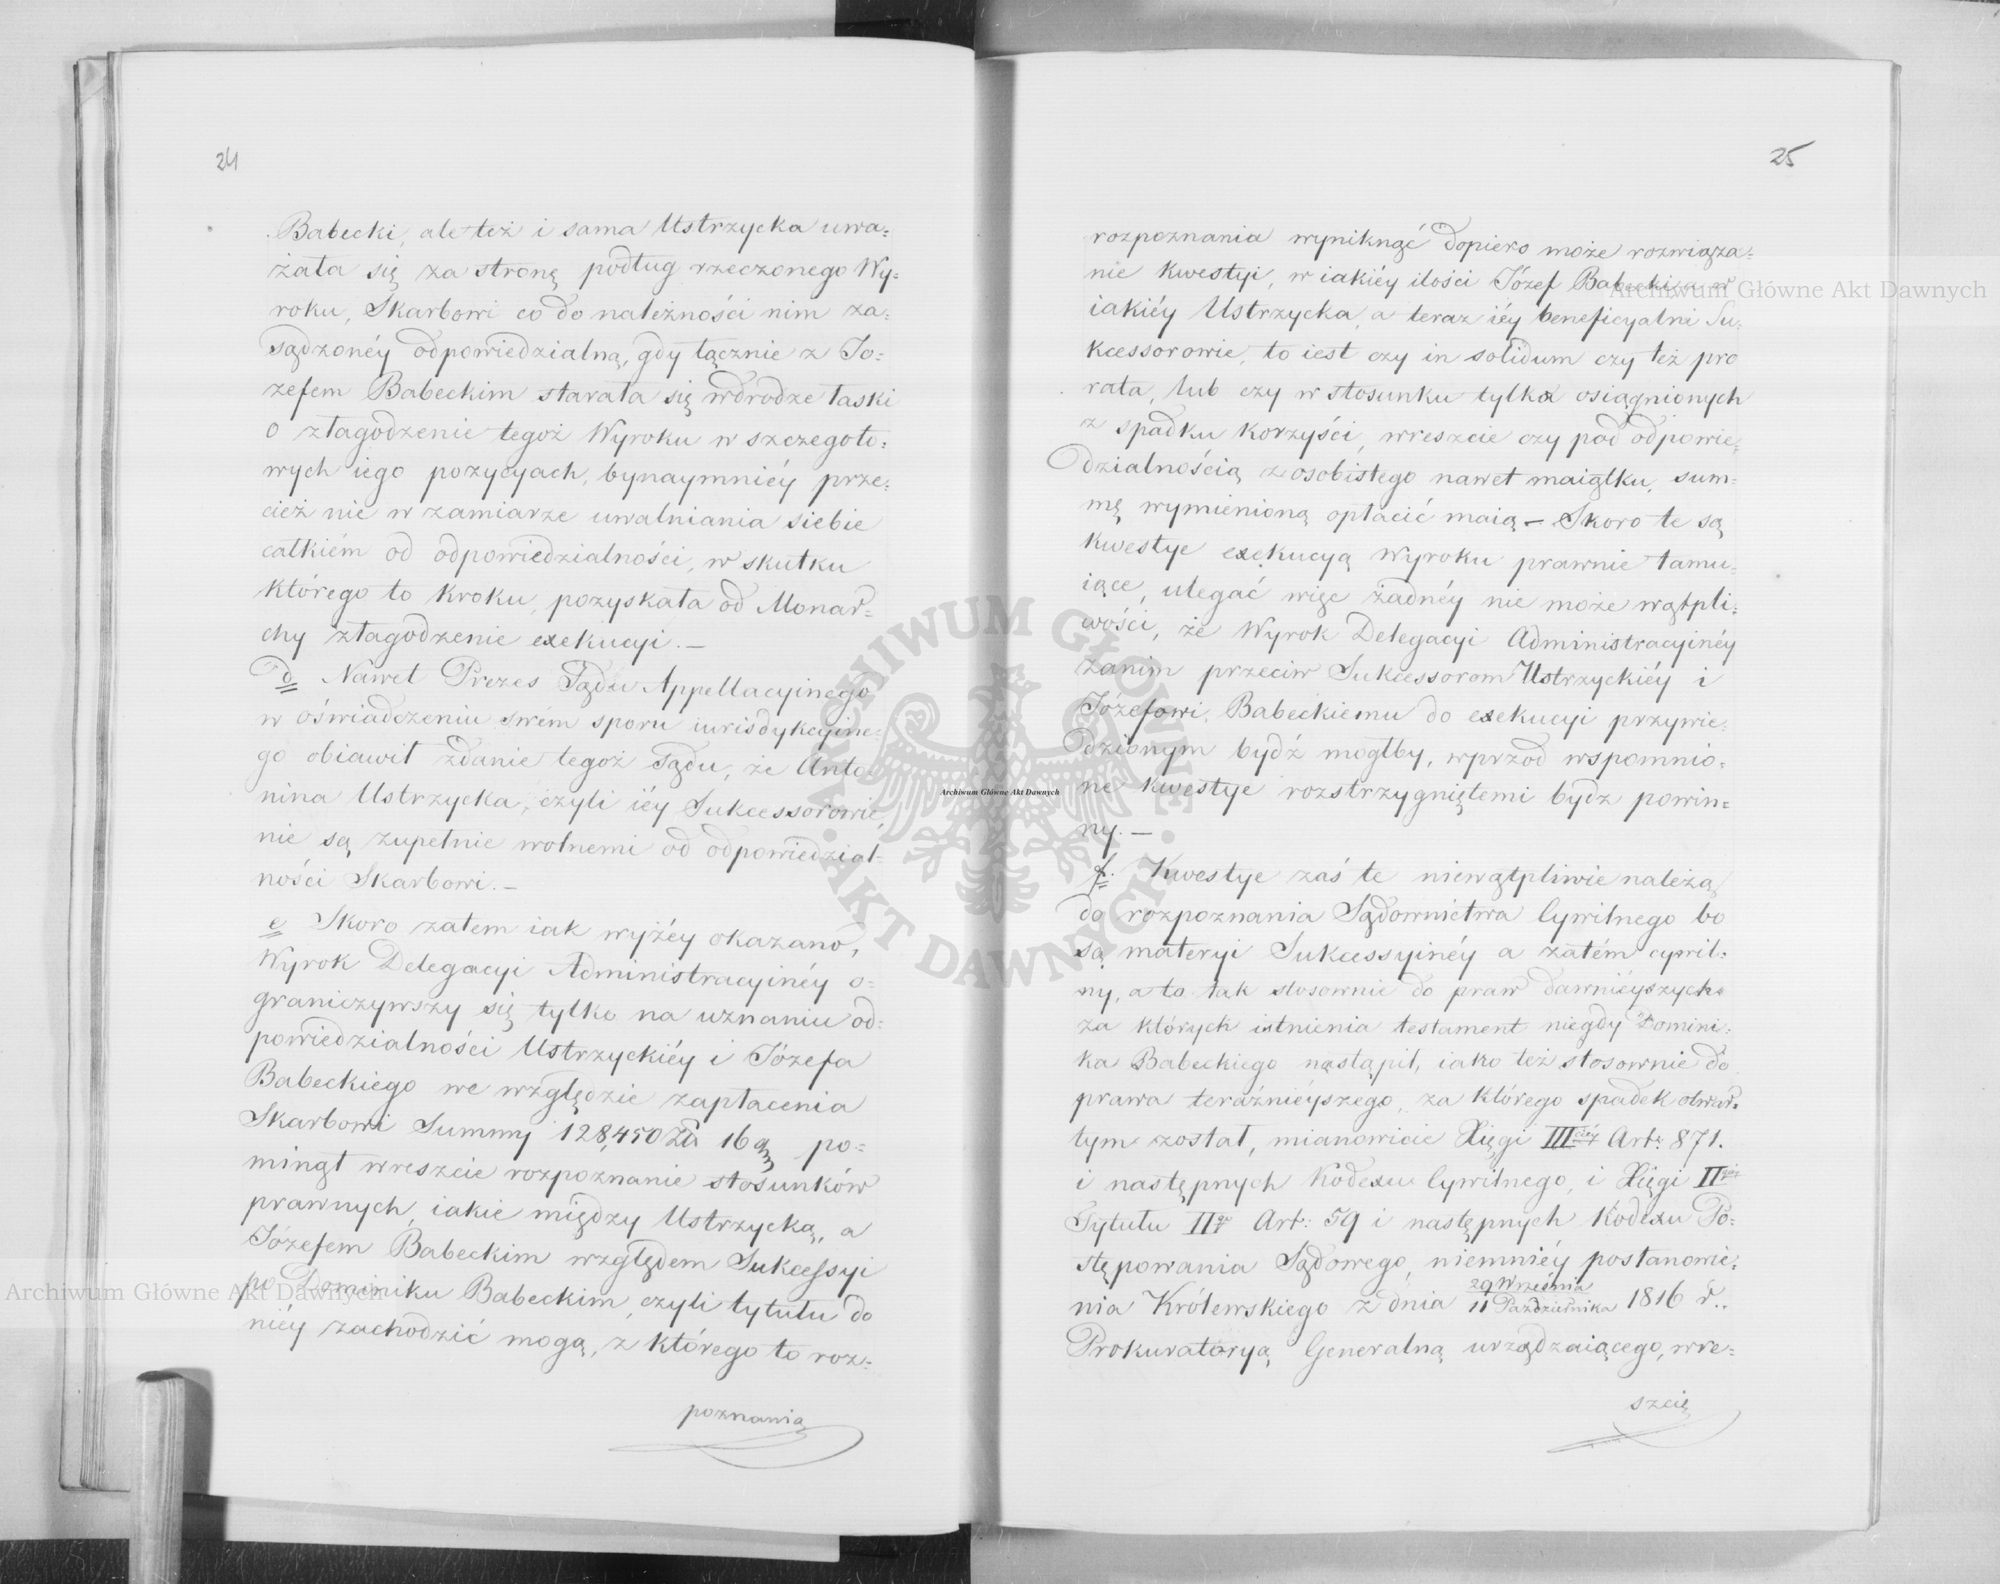 24
Babecki, ale też i sama Ustrzycka uwa=
żała się za stronę podług rzeczonego Wy=
roku, Skarbowi co do należności nim za=
sądzonéy odpowiedzialną, gdy łącznie z Jo=
zefem Babeckim starała się w drodze łaski
o złagodzenie tegoż Wyroku w szczegoło=
wych iego pozycyach, bynaymniéy prze=
cież nie w zamiarze uwalniania siebie
całkiém od odpowiedzialności, w skutku
którego to kroku, pozyskała od Monar=
chy złagodzenie exekucyi. —
d Nawet Prezes Sądu Appellacyinego
w oświadczeniu swém sporu iurisdykcyine=
go obiawił zdanie tegoż Sądu, że Anto=
nina Ustrzycka, czyli iéy Sukcessorowie,
nie są zupełnie wolnemi od odpowiedzial=
ności Skarbowi. —
e Skoro zatem iak wyżéy okazano,
Wyrok Delegacyi Administracyinéy o=
graniczywszy się tylko na uznaniu od=
powiedzialności Ustrzyckiéy i Józefa
Babeckiego we względzie zapłacenia
Skarbowi Summy 128,450 Zł 16 gr po=
minął wreszcie rozpoznanie stosunków
prawnych, iakie między Ustrzycką, a
Józefem Babeckim względem Sukcessyi
po Dominiku Babeckim, czyli tytułu do
niéy zachodzić mogą, z którego to roz=
poznania
25
rozpoznania wyniknąć dopiero może rozwiąza=
nie kwestyi, w iakiéy ilości Józef Babecki a w
iakiéy Ustrzycka, a teraz iéy beneficyalni Su=
kcessorowie, to iest czy in solidum czy też pro
rata, lub czy w stosunku tylko osiągnionych
z spadku korzyści, wreszcie czy pod odpowie=
dzialnością z osobistego nawet maiątku, sum=
mę wymienioną opłacić maią — Skoro te są
kwestye exekucyą Wyroku prawnie tamu=
iące, ulegać więc żadnéy nie może wątpli=
wości, że Wyrok Delegacyi Administracyinéy
zanim przeciw Sukcessorom Ustrzyckiéy i
Józefowi Babeckiemu do exekucyi przywie=
dzionym bydź mogłby, wprzod wspomnio=
ne kwestye rozstrzygniętemi bydz powin=
ny. —
f. Kwestye zaś te niewątpliwie należą
do rozpoznania Sądownictwa Cywilnego bo
są materyi Sukcessyinéy a zatém cywil=
ny, a to tak stosownie do praw dawniéyszych
za których istnienia testament niegdy Domini=
ka Babeckiego nastąpił, iako też stosownie do
prawa teraźnieyszego, za którego spadek otwar=
tym został, mianowicie Xięgi III Art: 871.
i następnych Kodexu Cywilnego, i Xięgi II
Tytułu II Art: 59 i następnych Kodexu Po=
stępowania Sądowego, niemniéy postanowie=
nia Królewskiego z dnia 29 Września
11 Października 1816 r.
Prokuratoryą Generalną urządzaiącego, wre=
szcie
Archiwum Główne Akt Dawnych
Archiwum Główne Akt Dawnych
Archiwum Główne Akt Dawnych
ARCHIWUM GŁÓWNE
AKT DAWNYCH